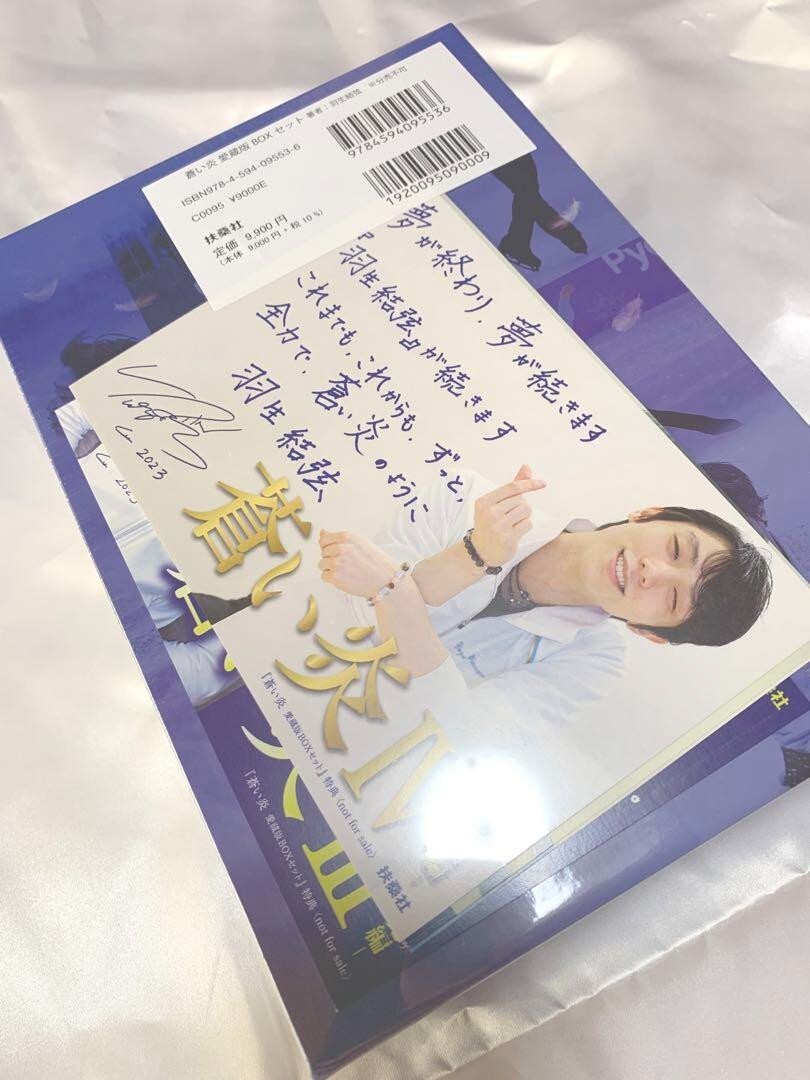 蒼い炎 愛蔵版 BOX セット 著者：羽生結弦 ※分売不可
ISBN978-4-594-09553-6
C0095 ¥9000E
扶桑社
定価 9,900 円
（本体 9,000 円＋税 10％）
9784594095536
1920095090009
夢が終わり、夢が続きます
羽生結弦が続きます
これまでも、これからも、ずっと、
全力で、蒼い炎のように
羽生結弦
Cu 2023
Cu 2023
蒼い炎 IV
『蒼い炎 愛蔵版BOXセット』特典〈not for sale〉
扶桑社
『蒼い炎 愛蔵版BOXセット』特典〈not for sale〉
炎 III
編
Py